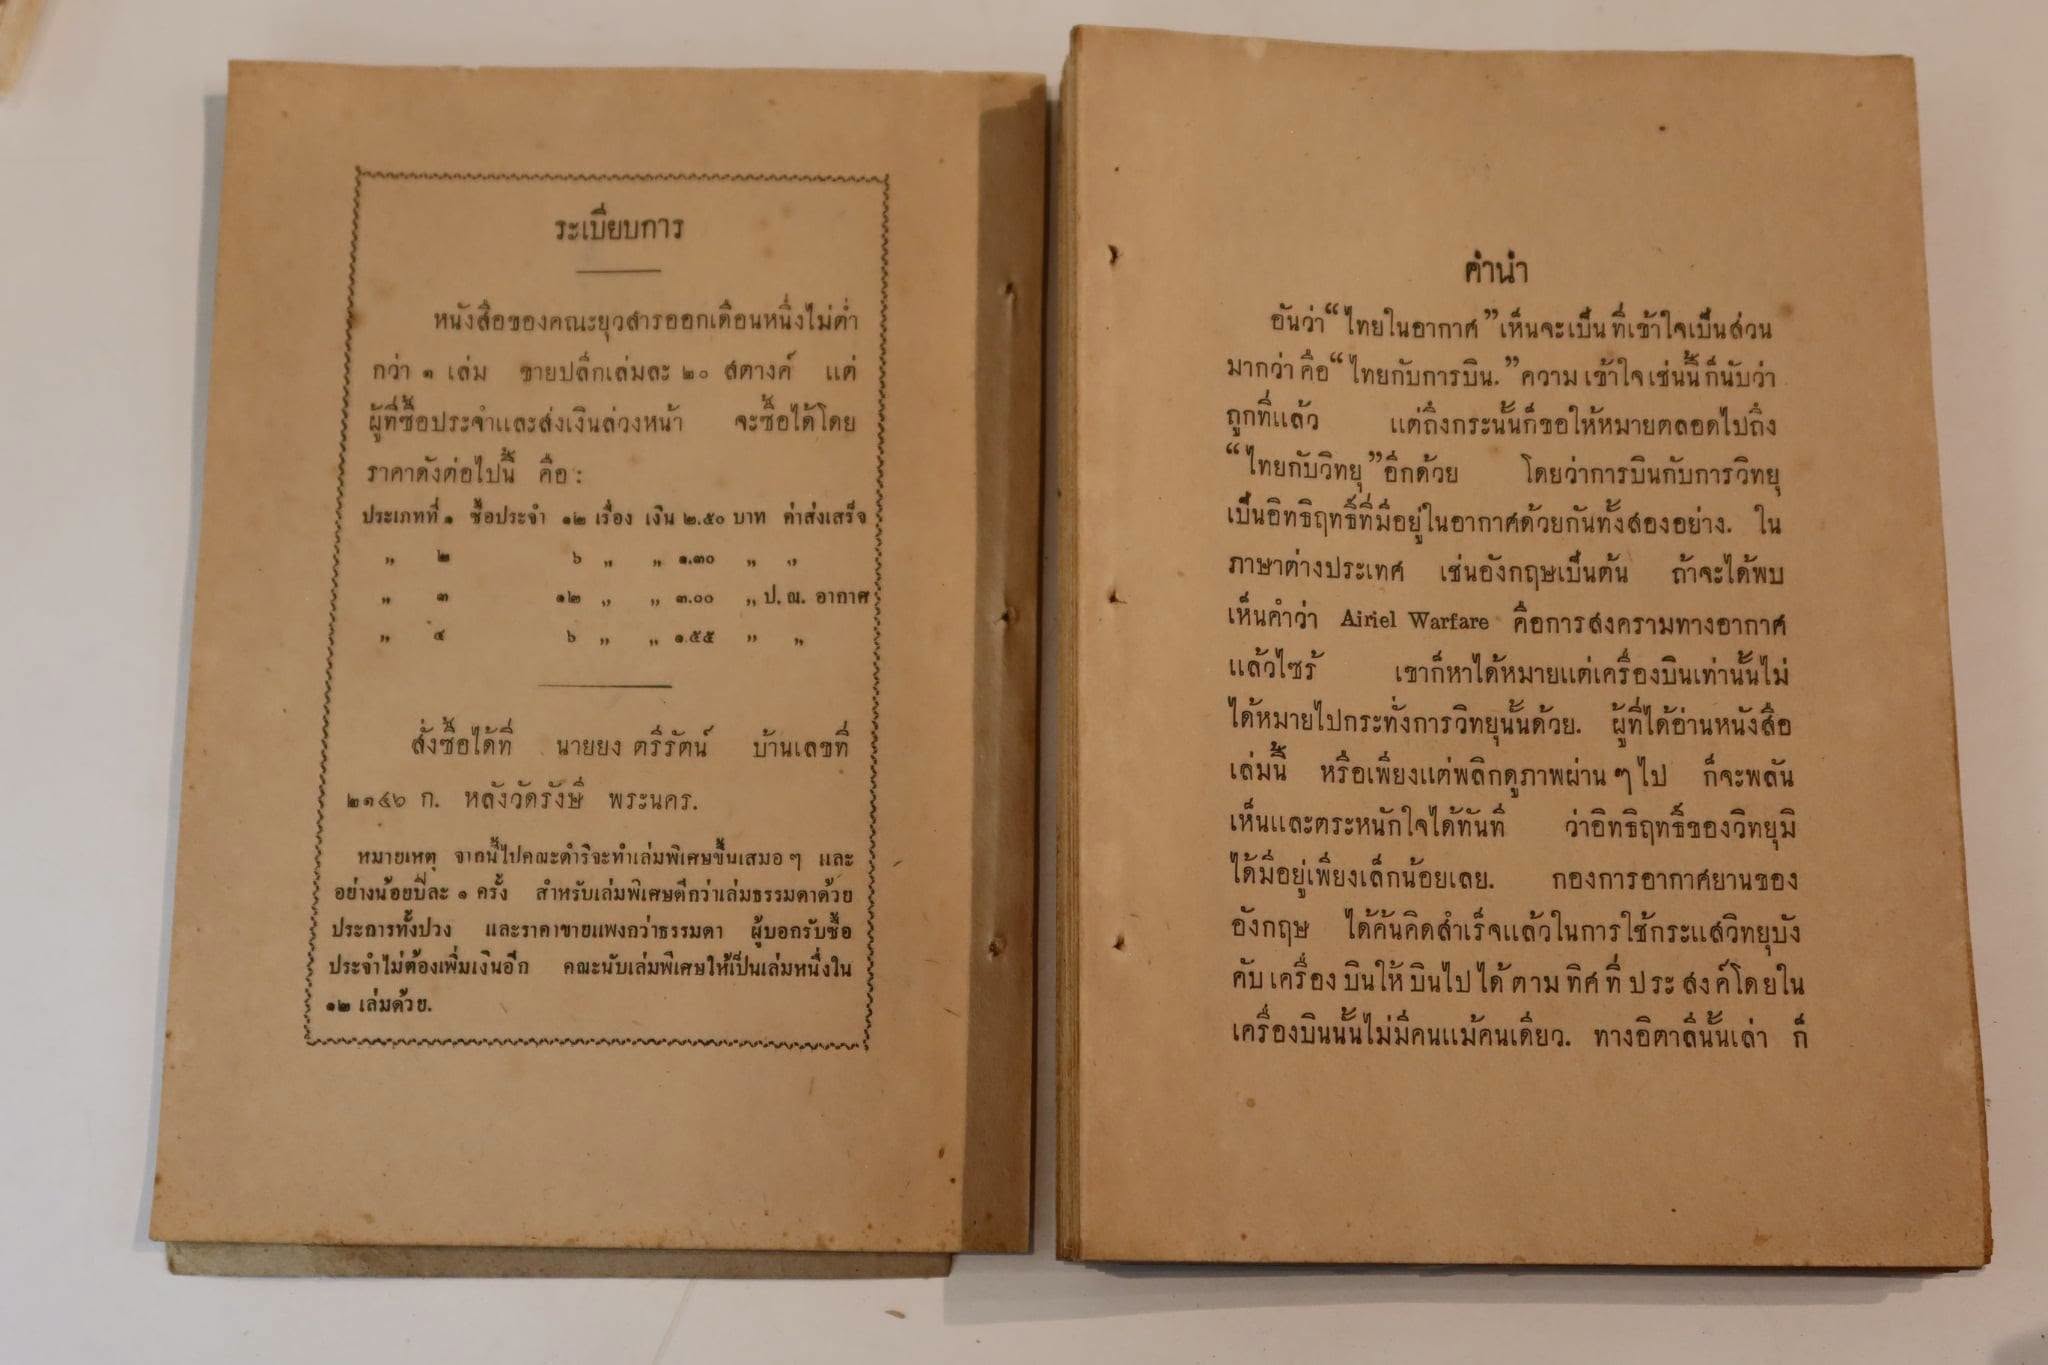 ระเบียบการ
หนังสือของคณะยุวสารออกเดือนหนึ่งไม่ต่ำ
กว่า ๑ เล่ม ขายปลีกเล่มละ ๒๐ สตางค์ แต่
ผู้ที่ซื้อประจำและส่งเงินล่วงหน้า จะซื้อได้โดย
ราคาดังต่อไปนี้ คือ :
ประเภทที่ ๑ ซื้อประจำ ๑๒ เรื่อง เงิน ๒.๕๐ บาท ค่าส่งเสร็จ
„ ๒ ๖ „ „ ๑.๓๐ „ „
„ ๓ ๑๒ „ „ ๓.๐๐ „ ป. ณ. อากาศ
„ ๔ ๖ „ „ ๑.๕๕ „ „
สั่งซื้อได้ที่ นายยง ตรีรัตน์ บ้านเลขที่
๒๑๔๖ ก. หลังวัดรังษี พระนคร.
หมายเหตุ จากนี้ไปคณะดำริจะทำเล่มพิเศษขึ้นเสมอ ๆ และ
อย่างน้อยปีละ ๑ ครั้ง สำหรับเล่มพิเศษดีกว่าเล่มธรรมดาด้วย
ประการทั้งปวง และราคาขายแพงกว่าธรรมดา ผู้บอกรับซื้อ
ประจำไม่ต้องเพิ่มเงินอีก คณะนับเล่มพิเศษให้เป็นเล่มหนึ่งใน
๑๒ เล่มด้วย.
คำนำ
อันว่า “ไทยในอากาศ” เห็นจะเป็นที่เข้าใจเป็นส่วน
มากว่า คือ “ไทยกับการบิน.” ความเข้าใจเช่นนี้ก็นับว่า
ถูกที่แล้ว แต่ถึงกระนั้นก็ขอให้หมายตลอดไปถึง
“ไทยกับวิทยุ” อีกด้วย โดยว่าการบินกับการวิทยุ
เป็นอิทธิฤทธิ์ที่มีอยู่ในอากาศด้วยกันทั้งสองอย่าง. ใน
ภาษาต่างประเทศ เช่นอังกฤษเป็นต้น ถ้าจะได้พบ
เห็นคำว่า Airiel Warfare คือการสงครามทางอากาศ
แล้วไซร้ เขาก็หาได้หมายแต่เครื่องบินเท่านั้นไม่
ได้หมายไปกระทั่งการวิทยุนั้นด้วย. ผู้ที่ได้อ่านหนังสือ
เล่มนี้ หรือเพียงแต่พลิกดูภาพผ่าน ๆ ไป ก็จะพลัน
เห็นและตระหนักใจได้ทันที ว่าอิทธิฤทธิ์ของวิทยุมิ
ได้มีอยู่เพียงเล็กน้อยเลย. กองการอากาศยานของ
อังกฤษ ได้ค้นคิดสำเร็จแล้วในการใช้กระแสวิทยุบัง
คับเครื่องบินให้บินไปได้ตามทิศที่ประสงค์โดยใน
เครื่องบินนั้นไม่มีคนแม้คนเดียว. ทางอิตาลีนั้นเล่า ก็